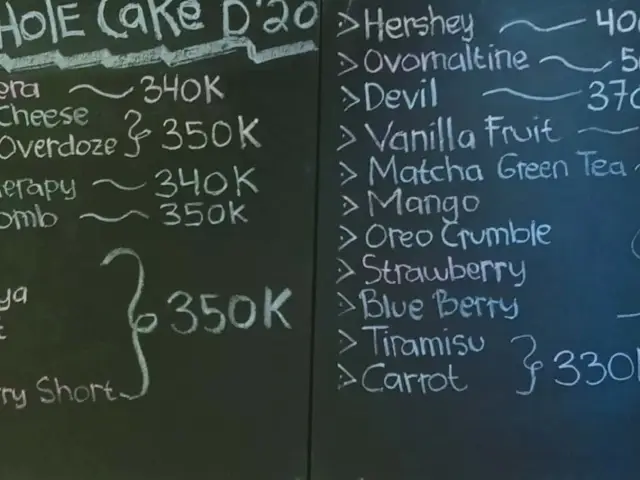 HOLE CaKe D'20
era 340K
Cheese
Overdoze 350K
erapy 340K
omb 350K
ya
350K
ry Short
Hershey 40
Ovomaltine 5
Devil 370
Vanilla Fruit
Matcha Green Tea
Mango
Oreo Crumble
Strawberry
Blue Berry
Tiramisu
Carrot 330K